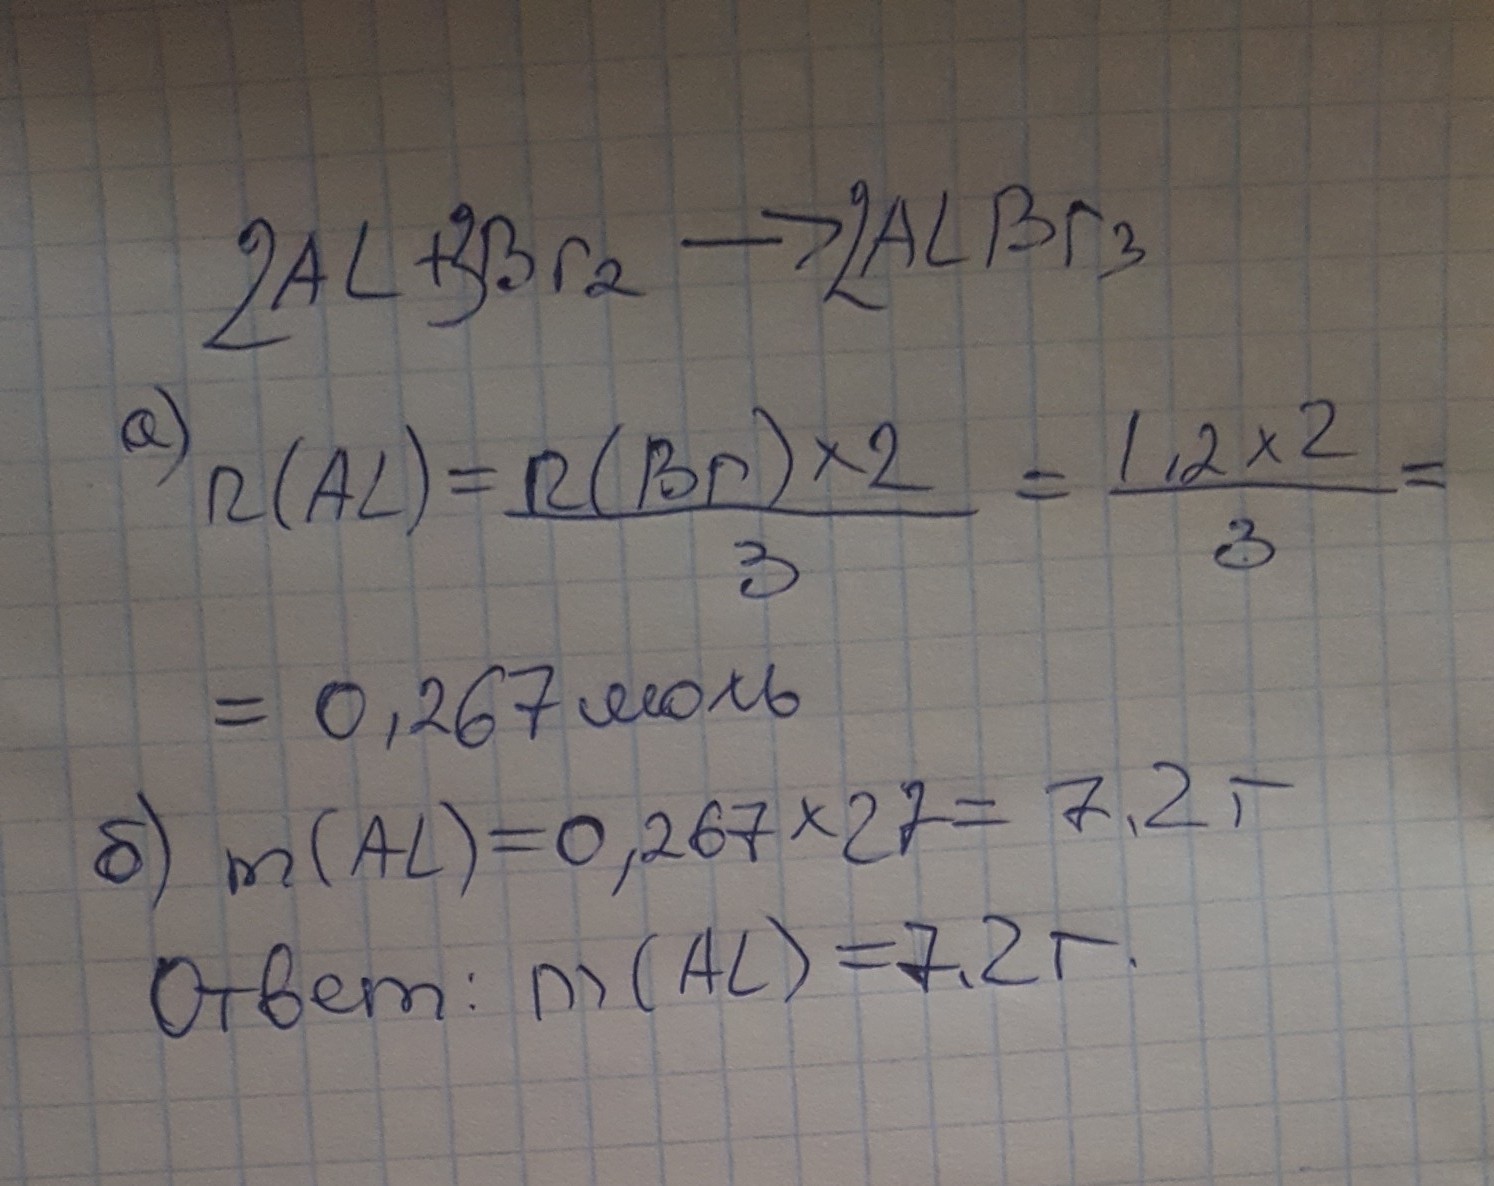 2AL+3Br2 —> 2ALBr3
а) n(AL) = n(Br)×2 / 3 = 1,2×2 / 3 =
= 0,267 моль
б) m(AL) = 0,267×27 = 7,2 г
Ответ: m(AL) = 7,2 г.